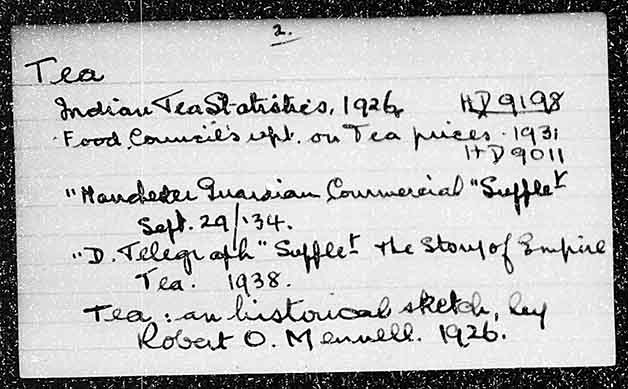 2.
Tea
Indian Tea Statistics, 1926 HD 9198
Food Council's rept. on Tea prices. 1931
HD 9011
"Manchester Guardian Commercial" Supplet
Sept. 29/'34.
"D. Telegraph" Supplet the Story of Empire
Tea. 1938.
Tea: an historical sketch, by
Robert O. Mennell. 1926.